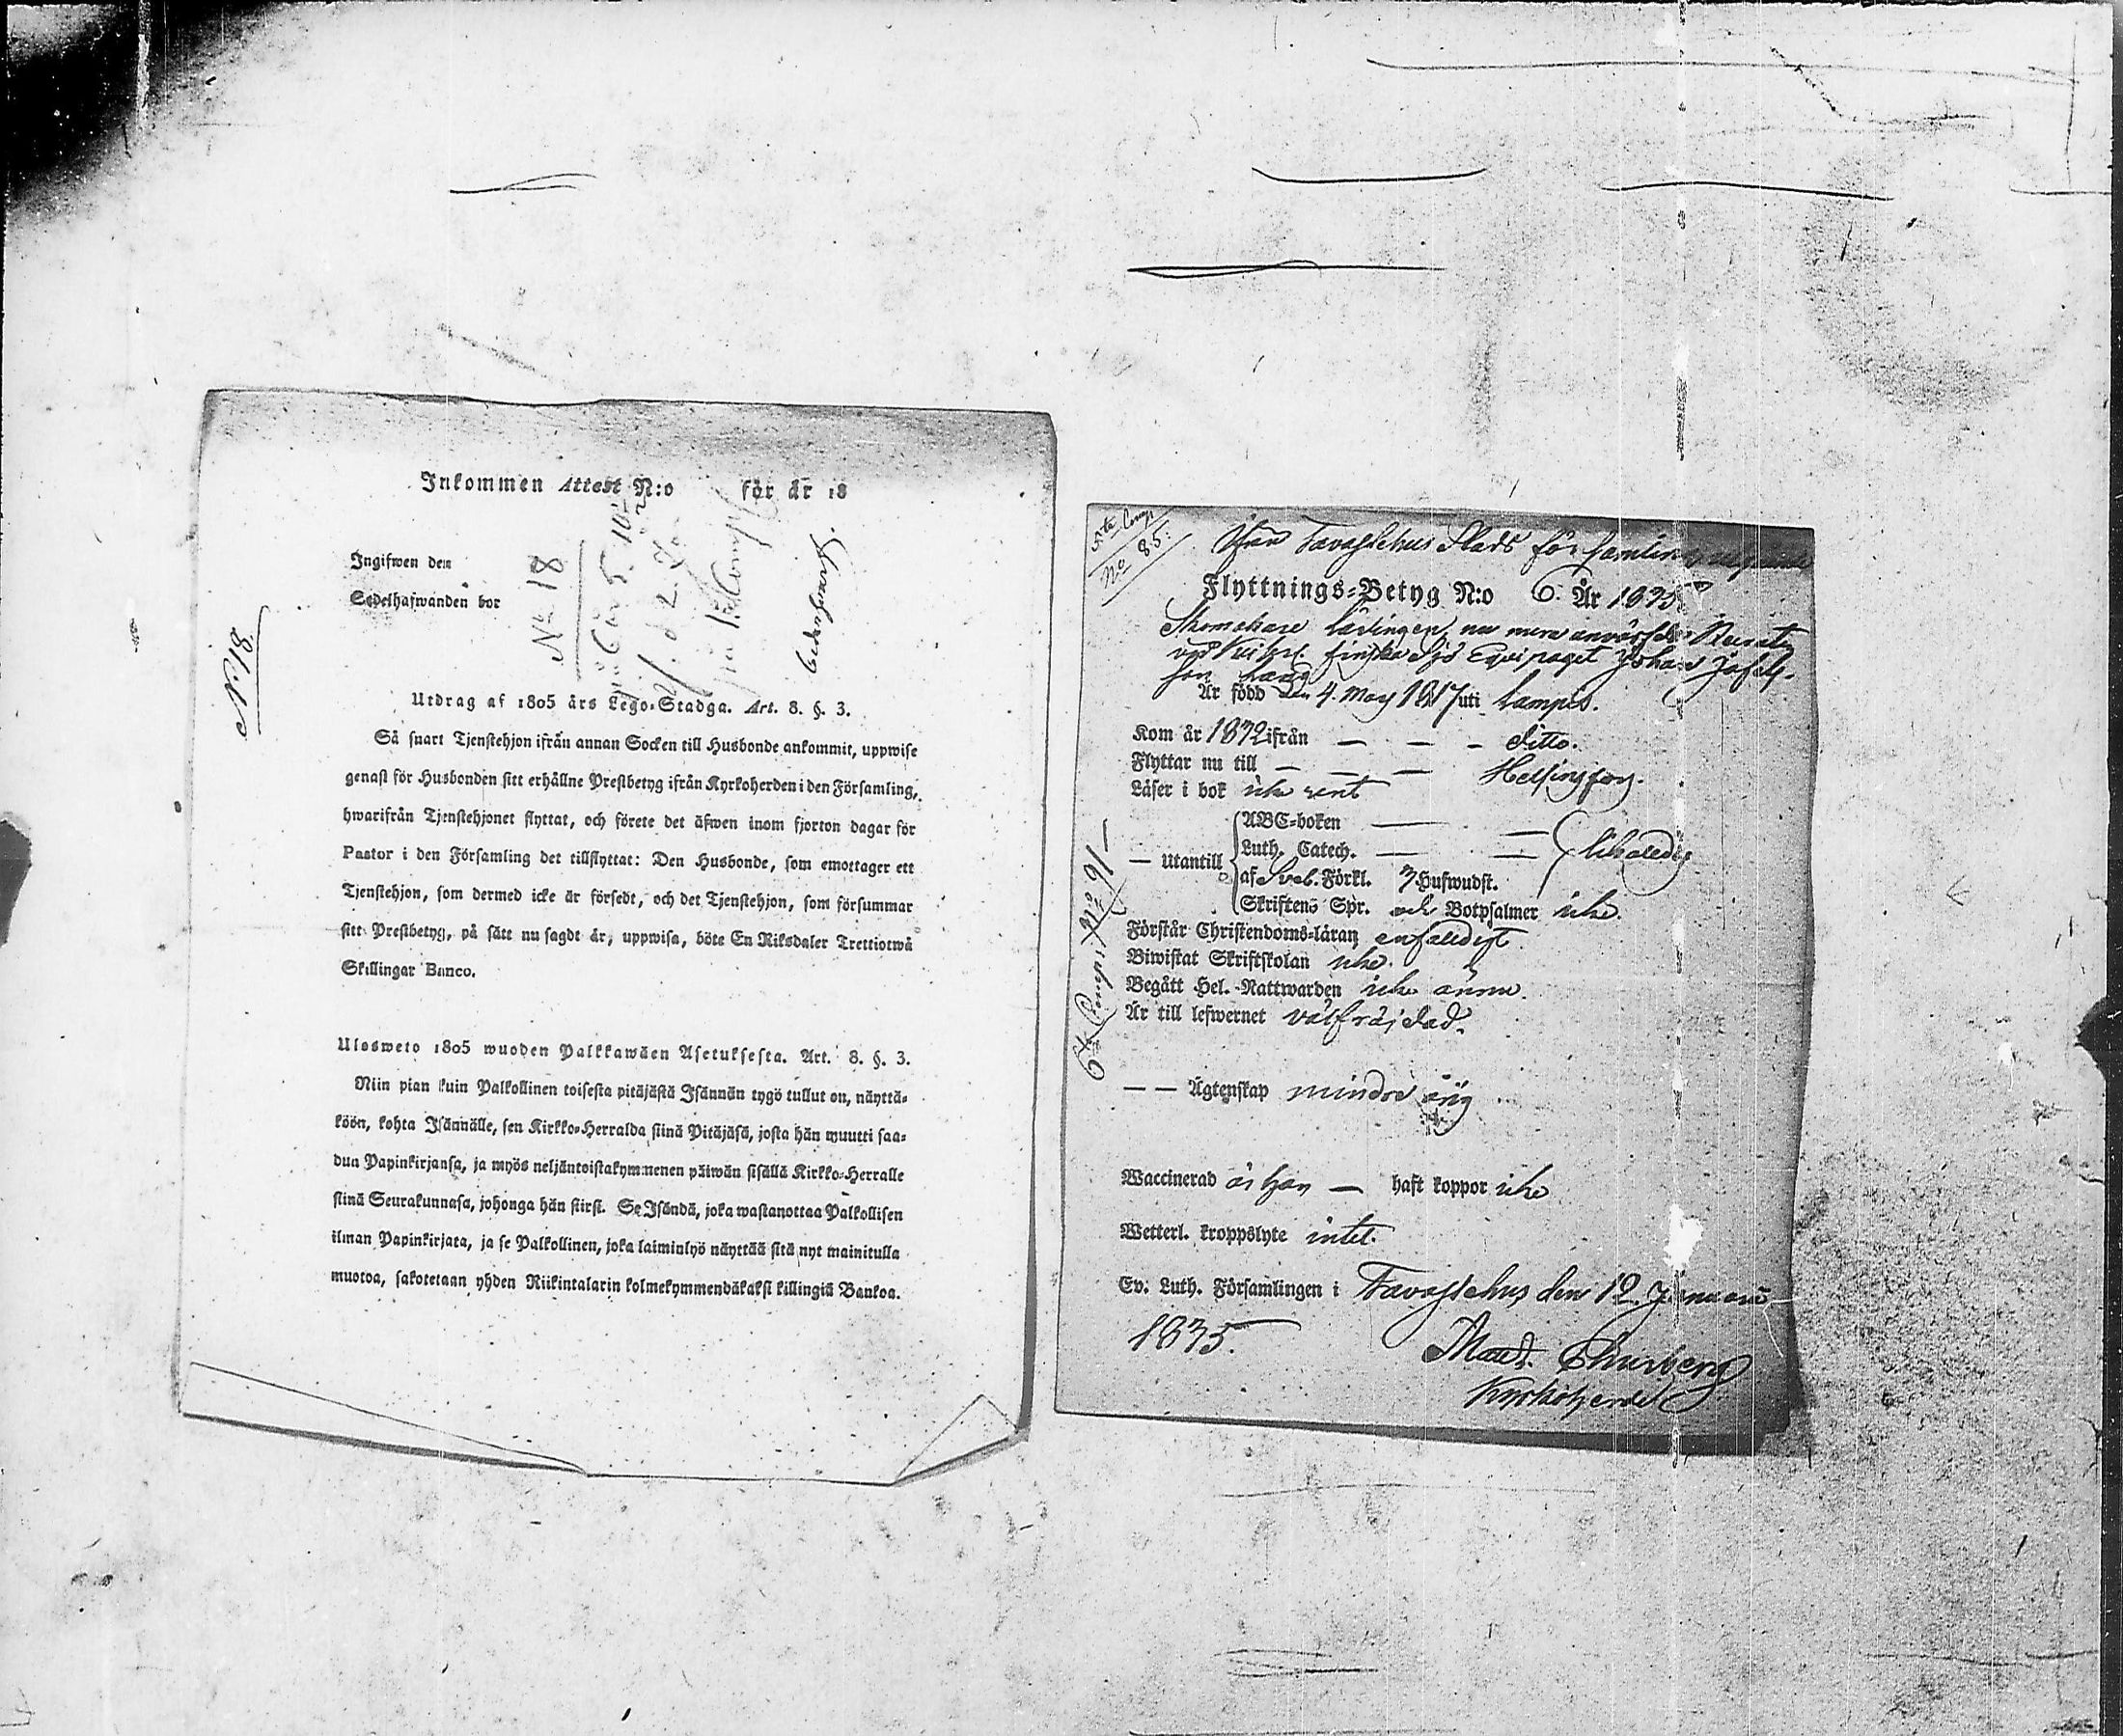 Inkommen Attest N:o för år 18
Ingifwen den
Sedelhafwanden bor
No 18
N. 18.
Utdrag af 1805 års Lego-Stadga. Art. 8. §. 3.
Så snart Tjenstehjon ifrån annan Socken till Husbonde ankommit, uppwise
genast för Husbonden sitt erhållne Prestbetyg ifrån Kyrkoherden i den Församling,
hwarifrån Tjenstehjonet flyttat, och förete det äfwen inom fjorton dagar för
Pastor i den Församling det tillflyttat: Den Husbonde, som emottager ett
Tjenstehjon, som dermed icke är försedt, och det Tjenstehjon, som försummar
sitt Prestbetyg, på sätt nu sagdt är, uppwisa, böte En Riksdaler Trettiotwå
Skillingar Banco.
Ulosweto 1805 wuoden Palkkawäen Asetuksesta. Art. 8. §. 3.
Niin pian kuin Palkollinen toisesta pitäjästä Isännän tygö tullut on, näyttä-
köön, kohta Isännälle, sen Kirkko-Herralda siinä Pitäjäsä, josta hän muutti saa-
dun Papinkirjansa, ja myös neljäntoistakymmenen päiwän sisällä Kirkko-Herralle
siinä Seurakunnasa, johonga hän siirsi. Se Isändä, joka wastanottaa Palkollisen
ilman Papinkirjata, ja se Palkollinen, joka laiminlyö näyttää sitä nyt mainitulla
muotoa, sakotetaan yhden Riikintalarin kolmekymmendäkaksi killingiä Bankoa.
No 85.
Ifrån Tavastehus Stads församling
Flyttnings-Betyg N:o 6. År 1835
Skomakare lärlingen, nu mera
vid Kejserl. finska Sjö Equipaget Johan Josefs-
son
Är född den 4. May 1817 uti Lampis.
Kom år 1832 ifrån — — — ditto.
Flyttar nu till — — — Helsingfors.
Läser i bok icke rent
— Utantill
ABC-boken — —
Luth. Catech. — —
af Sveb. Förkl. 3 Hufwudst.
Skriftens Spr. och Botpsalmer icke.
Förstår Christendoms-läran enfaldigt.
Biwistat Skriftskolan icke.
Begått Hel. Nattwarden icke ännu.
Är till lefwernet välfräjdad.
— — Ägtenskap minderårig
Waccinerad är han — haft koppor icke
Wetterl. kroppslyte intet.
Ev. Luth. Församlingen i Tavastehus den 12. Januari
1835.
Kyrkoherde
6te Comp. No 91